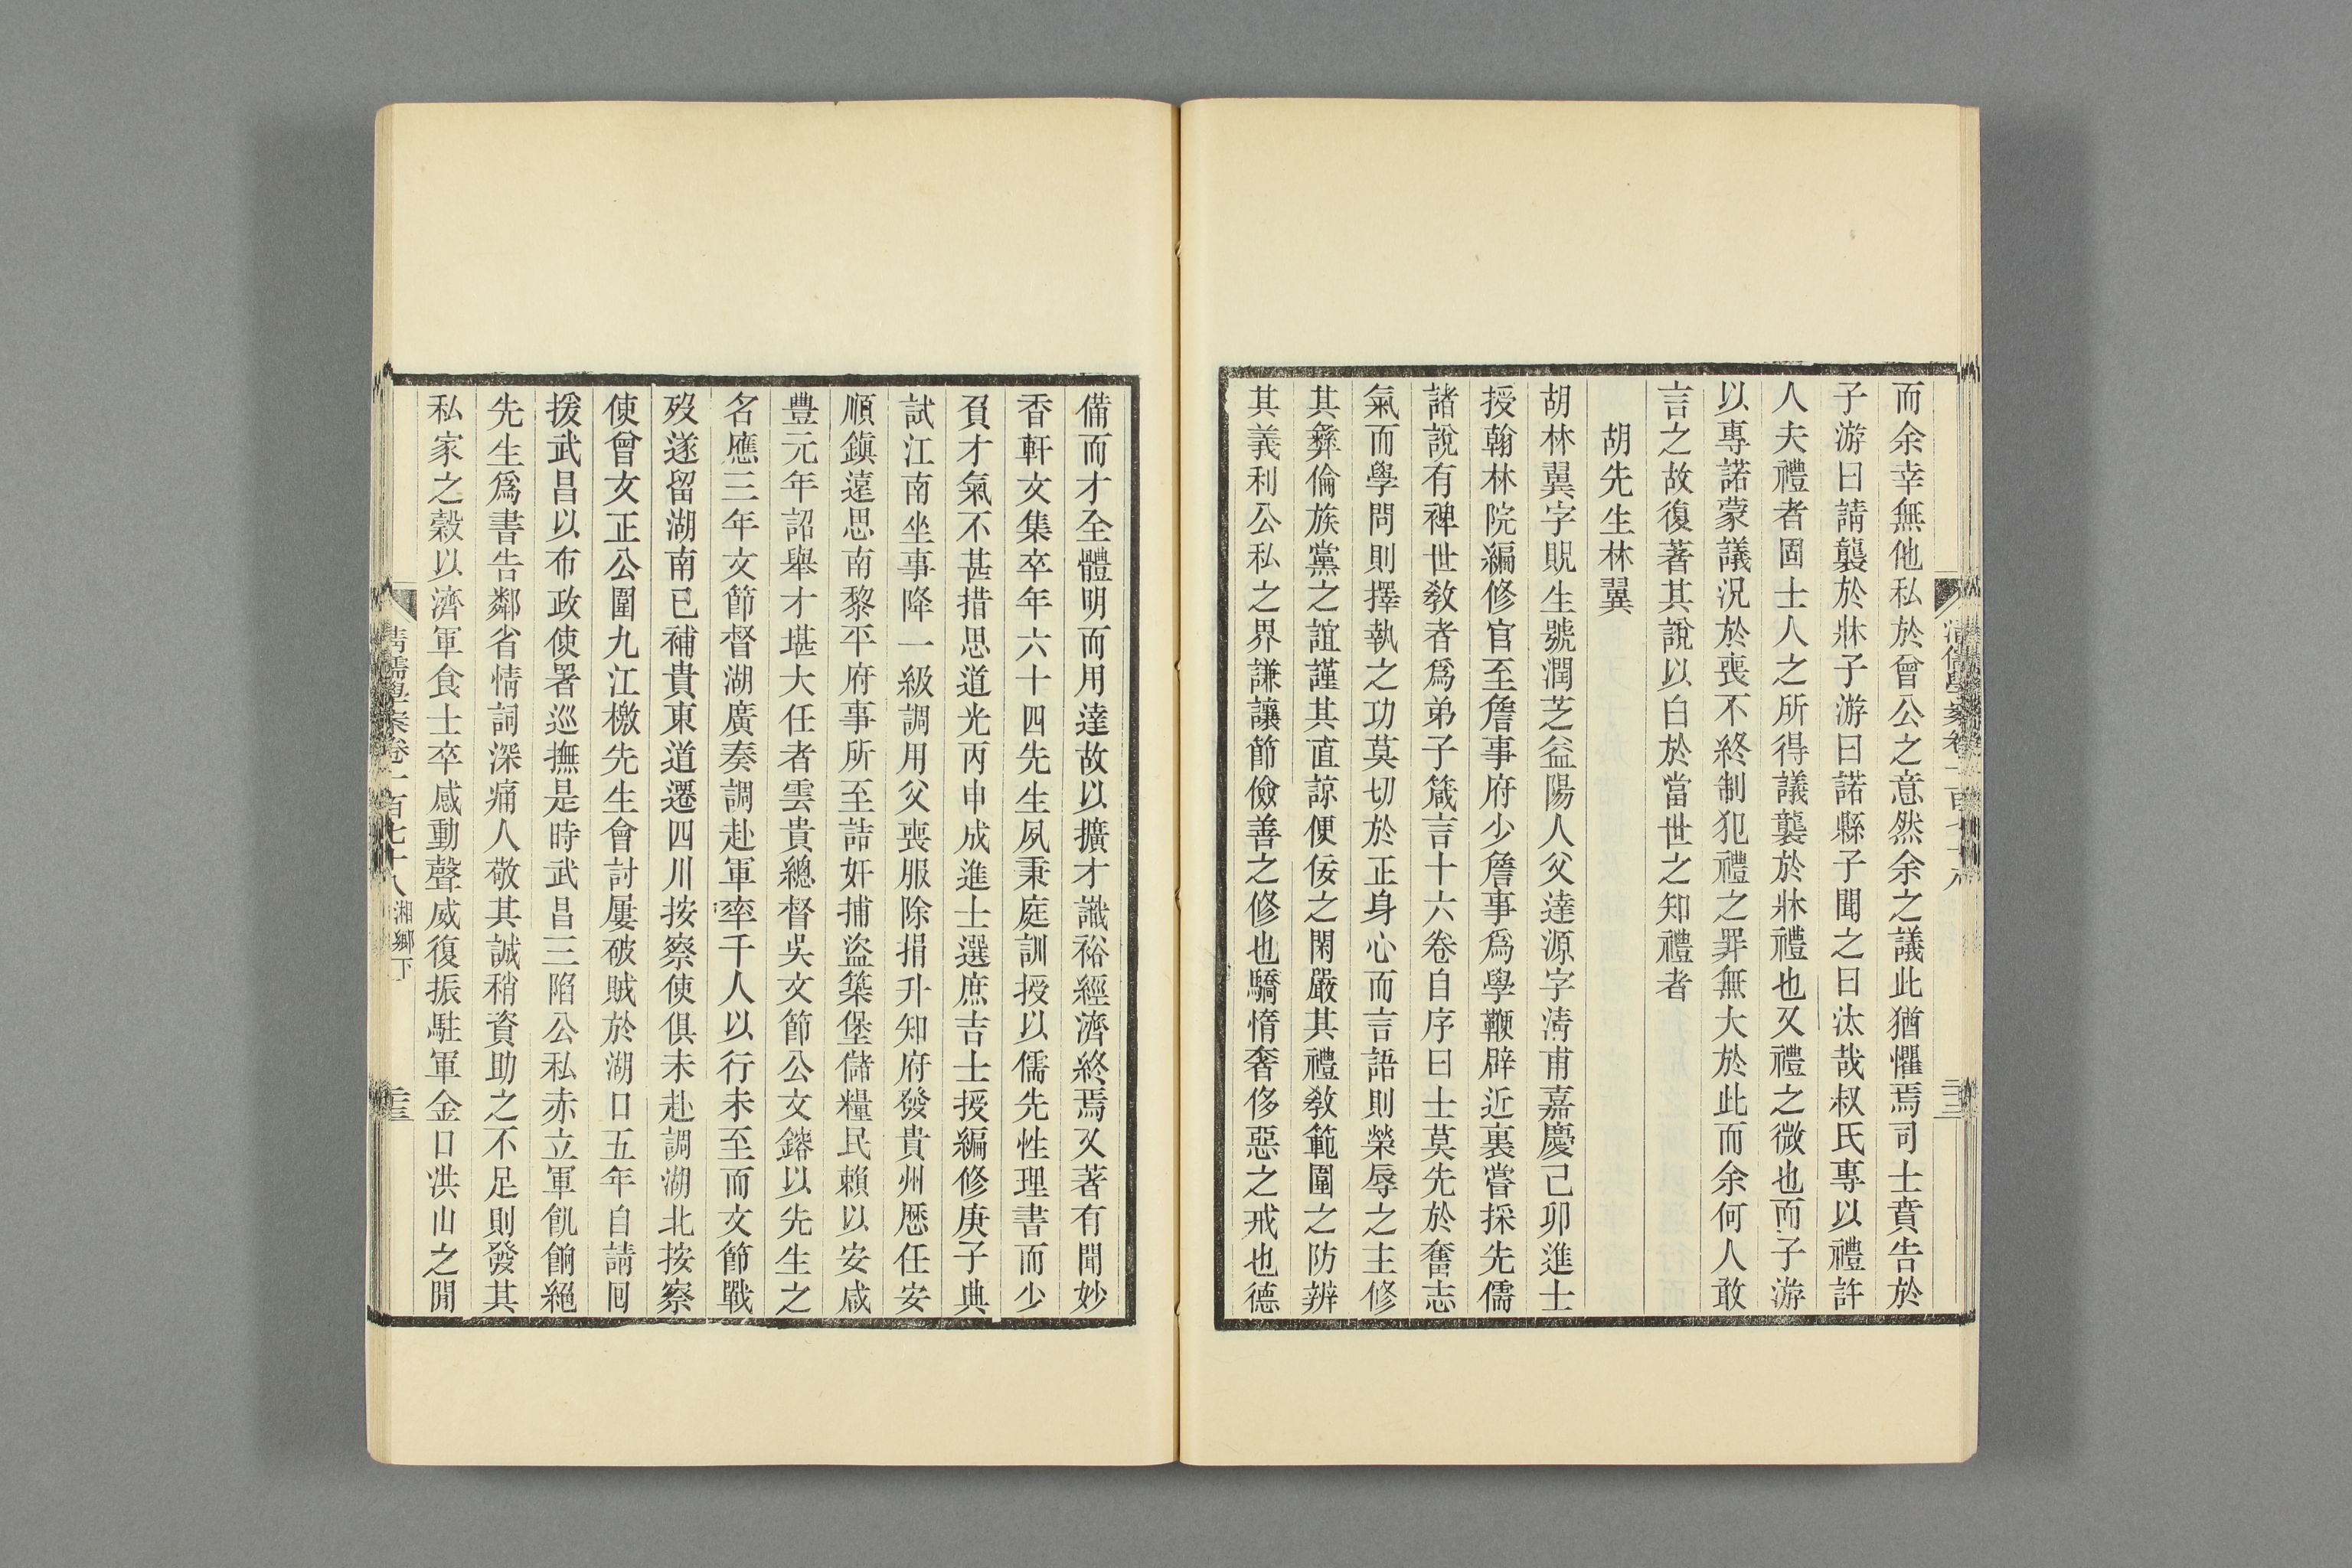 而余幸無他私於曾公之意然余之議此猶懼焉司士賁告於
子游曰請襲於牀子游曰諾縣子聞之曰汰哉叔氏專以禮許
人夫禮者固士人之所得議襲於牀禮也又禮之微也而子游
以專諾蒙議況於喪不終制犯禮之罪無大於此而余何人敢
言之故復著其說以白於當世之知禮者
胡先生林翼
胡林翼字貺生號潤芝益陽人父達源字清甫嘉慶己卯進士
授翰林院編修官至詹事府少詹事爲學鞭辟近裏嘗採先儒
諸說有裨世敎者爲弟子箴言十六卷自序曰士莫先於奮志
氣而學問則擇執之功莫切於正身心而言語則榮辱之主修
其彝倫族黨之誼謹其直諒便佞之閑嚴其禮敎範圍之防辨
其義利公私之界謙讓節儉善之修也驕惰奢侈惡之戒也德
備而才全體明而用達故以擴才識裕經濟終焉又著有聞妙
香軒文集卒年六十四先生夙秉庭訓授以儒先性理書而少
負才氣不甚措思道光丙申成進士選庶吉士授編修庚子典
試江南坐事降一級調用父喪服除捐升知府發貴州歷任安
順鎭遠思南黎平府事所至詰奸捕盜築堡儲糧民賴以安咸
豐元年詔舉才堪大任者雲貴總督吳文節公文鎔以先生之
名應三年文節督湖廣奏調赴軍率千人以行未至而文節戰
歿遂留湖南已補貴東道遷四川按察使俱未赴調湖北按察
使曾文正公圍九江檄先生會討屢破賊於湖口五年自請囘
援武昌以布政使署巡撫是時武昌三陷公私赤立軍飢餉絕
先生爲書告鄰省情詞深痛人敬其誠稍資助之不足則發其
私家之穀以濟軍食士卒感動聲威復振駐軍金口洪山之閒
清儒學案卷一百七十八 湘鄉下